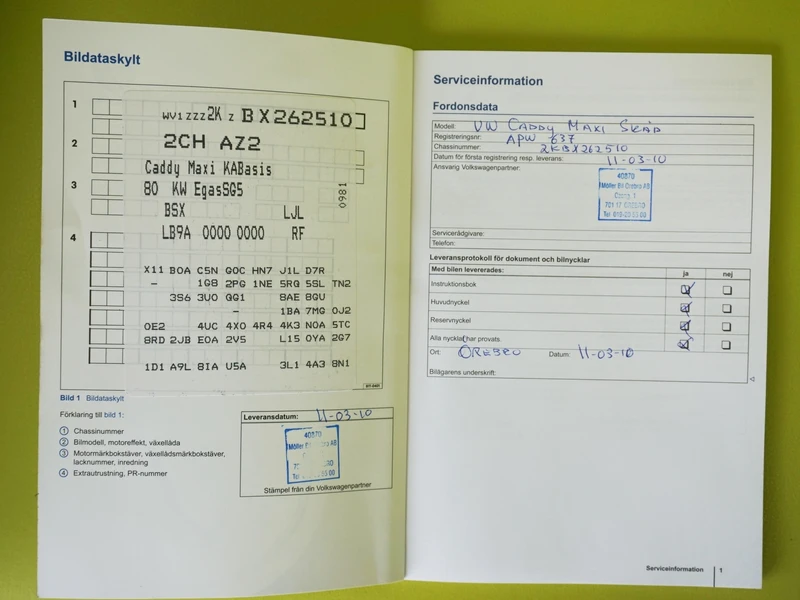 Bildataskylt
1
WV1ZZZ2K Z BX262510
2
2CH AZ2
Caddy Maxi KABasis
3
80 KW EgasSG5
0981
BSX LJL
4
LB9A 0000 0000 RF
X11 B0A C5N Q0C HN7 J1L D7R
- 1G8 2PG 1NE 5RQ 5SL TN2
3S6 3U0 GG1 8AE 8GU
- 1BA 7MG 0J2
0E2 4UC 4X0 4R4 4K3 N0A 5TC
8RD 2JB E0A 2V5 L15 0YA 2G7
1D1 A9L 8IA U5A 3L1 4A3 8N1
Bild 1 Bildataskylt
Förklaring till bild 1:
1 Chassinummer
2 Bilmodell, motoreffekt, växellåda
3 Motormärkbokstäver, växellådsmärkbokstäver,
lacknummer, inredning
4 Extrautrustning, PR-nummer
Leveransdatum: 11-03-10
40870
Möller Bil Örebro AB
Stämpel från din Volkswagenpartner
Serviceinformation
Fordonsdata
Modell: VW CADDY MAXI SKÅP
Registreringsnr: APW 637
Chassinummer: 2KBX262510
Datum för första registrering resp. leverans: 11-03-10
Ansvarig Volkswagenpartner:
40870
Möller Bil Örebro AB
Servicerådgivare:
Telefon:
Leveransprotokoll för dokument och bilnycklar
Med bilen levererades: ja nej
Instruktionsbok
Huvudnyckel
Reservnyckel
Alla nycklar har provats.
Ort: ÖREBRO Datum: 11-03-10
Bilägarens underskrift:
Serviceinformation 1